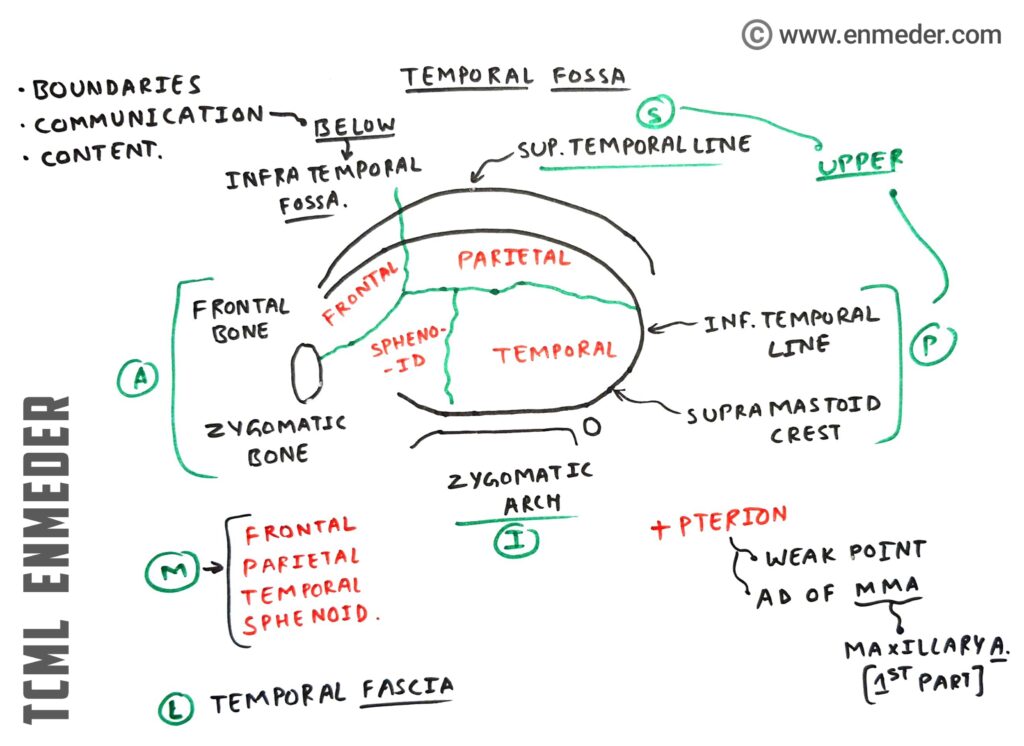 © www.enmeder.com
TEMPORAL FOSSA
• BOUNDARIES
• COMMUNICATION
• CONTENT.
BELOW
INFRA TEMPORAL
FOSSA.
S
SUP. TEMPORAL LINE
UPPER
FRONTAL
PARIETAL
SPHENO-
-ID
TEMPORAL
A
FRONTAL
BONE
ZYGOMATIC
BONE
INF. TEMPORAL
LINE
P
SUPRAMASTOID
CREST
ZYGOMATIC
ARCH
I
M
FRONTAL
PARIETAL
TEMPORAL
SPHENOID.
+ PTERION
WEAK POINT
AD OF MMA
MAXILLARY A.
[1ST PART]
L TEMPORAL FASCIA
TCML ENMEDER